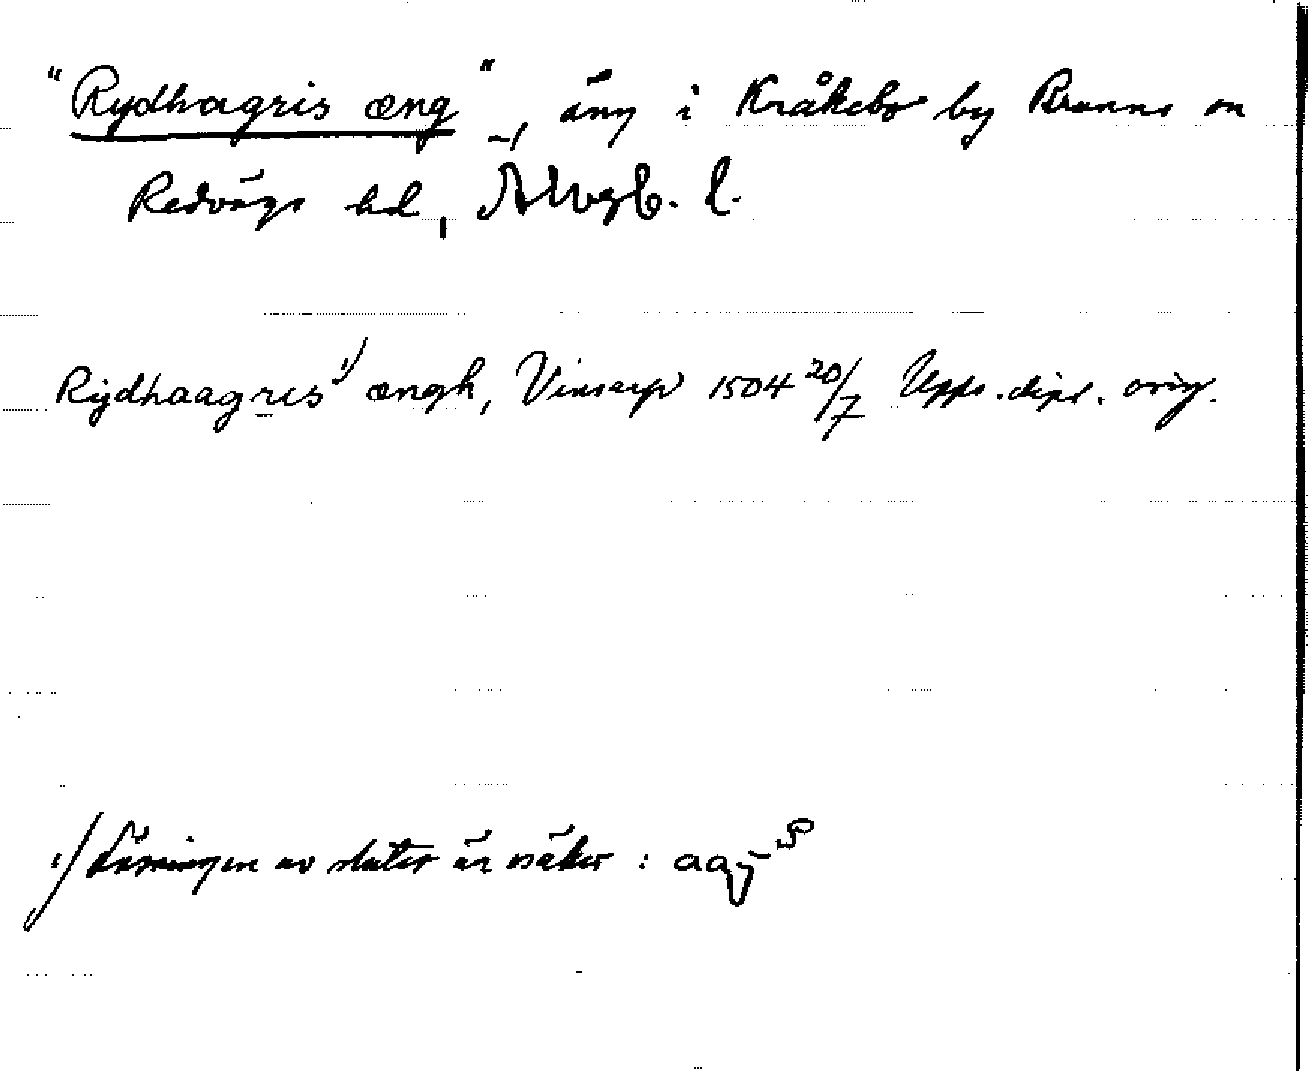 "Rydhagris æng", äng i Kråkebo by Brunns sn
Redvägs hd, Älvsb. l.
Rijdhaagres 1) ængh, Vinsarp 1504 20/7 Upps. dipl. orig.
1) Läsningen av slutet är osäker: aag